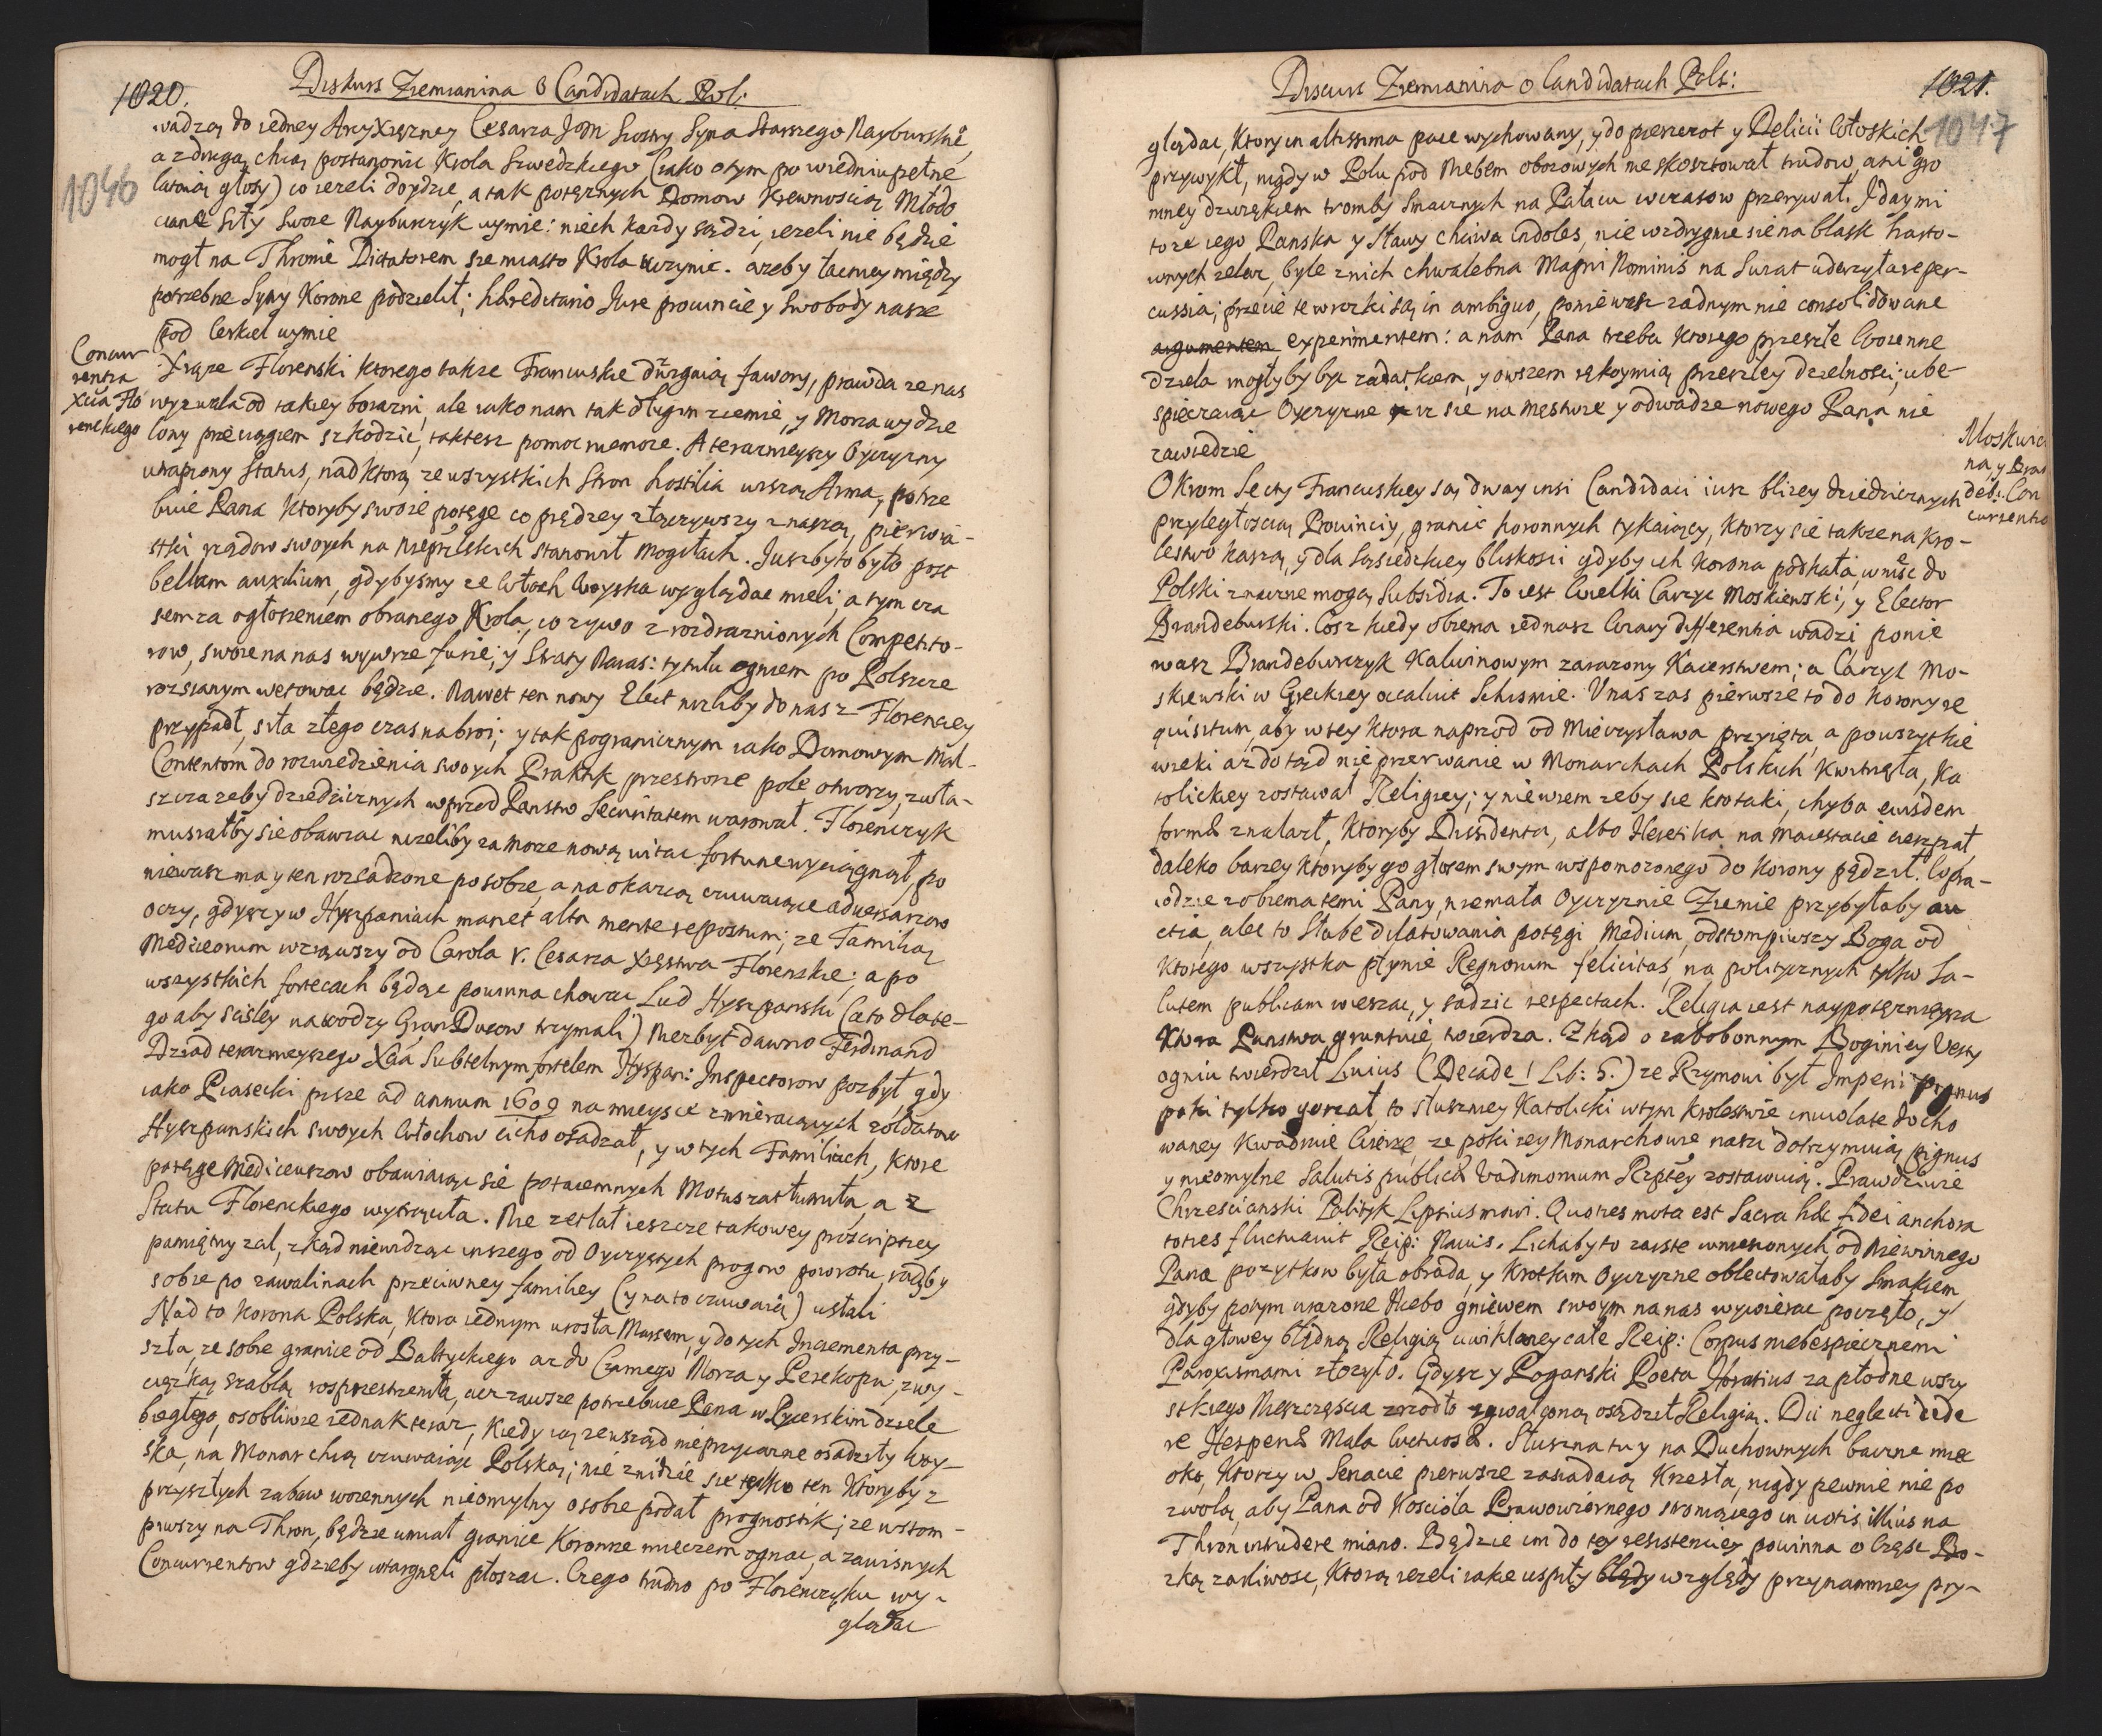 1020.
Diskurs Ziemianina o Candidatach Pol:
1046
wadzą do iedney Arcyxiężney Cesarza Jm siostry Syna starszego Rayburskie,
a z drugą chcą postanowic Krola Szwedzkiego (iako o tym po wiedniu pełne
lataią głosy) co iezeli doydzie, a tak potęznych Domow Krewnoscią Młodo
ciane siły swoie Rayburczyk uymie: niech kazdy sądzi, iezeli nie będzie
mogł na Thronie Dictatorem sie miasto Krola uczynic. azeby łacniey między
potrzebne Syny Korone podzielił; hereditario Jure prowincie y swobody nasze
pod berkel uymie
Concur
rentia
Xcia Flo
renckiego
Xiąze Florenski ktorego takze Francuskie dzwigaią fawory, prawda ze nas
wyzuwla od takiey boiazni, ale iako nam tak długim ziemie, y Morza wydzie
lony przeciągiem szkodzic, taktesz pomoc niemoze. A terazniejszy Oyczyzny
utrapiony Status, nad ktorą ze wszystkich stron hostilia wiszą Arma, potrze
buie Pana ktoryby swoie potęge co prędzey złączywszy z naszą, pierwia-
stki rządow swoych na Nieprzilskich stanowił mogiłach. Juszby to było post
bellum auxilium, gdybysmy ze Włoch Woyska wyglądac mieli, a tym cza
sem za ogłoszeniem obranego Krola, co zywo z rozdraznionych Competito-
row, swoie na nas wywrze furie; y straty Navas: tytułu ogniem po Polszcze
rozsianym wetowac będzie. Nawet ten nowy Elect nizliby do nas z Florenciey
przypadł, siła złego czas nabroi; y tak pogranicznym iako Domowym Mal-
Contentom do rozwiedzienia swoych Praktik przestworne pole otworzy, zwła-
szcza zeby dziedzicznych wprzod Panstw Securitatem warował. Florenczyk
musiałby sie obawiac nizeliby za Morze nową witac fortune wyciągnął, po
niewasz ma y ten rozsadzone po sobie, a na okazią czuwaiące adversarzow
oczy, gdysz y w Hyszpaniach manet alta mente repostum; ze Familią
Mediceorum wziąwszy od Carola V. Cesarza Xięstwa Florenskie; a po
wszystkich fortecach będąc powinna chowac Lud Hyszpanski (a to dlate-
go aby sciśley na wodzy Gran Ducow trzymali) Niezbyt dawno Ferdinand
Dziad terazniejszego Xcia Subtelnym fortelem Hyspan: Inspectorow pozbył gdy
iako Piasecki pisze ad annum 1609 na mieysce zmieraiących zołdatow
Hyszpanskich swoych Włochow cicho osadzał, y w tych Familiach, ktore
potęge Mediceuszow obawiaiąc sie potaiemnych Motus zatłumiła, a z
Statu Florenckiego wyrzuciła. Nie zetlał ieszcze takowey proscriptiey
pamiętny zal, zkąd niewidząc inszego od Oyczystych progow powrotu, radziby
sobie po zawalinach przeciwney familiey (y na to czuwaią) usłali
Nad to Korona Polska, ktora iednym urosła Marsem, y do tych Incrementa przy-
szła, ze sobie granice od Baltyckiego az do Czarnego Morza y Perekopu, zwy-
cięzką szablą rosprzestrzeniła, acz zawsze potrzebuie Pana w Rycerskim dziele
biegłego, osobliwie iednak teraz, kiedy ią zewsząd nieprzyiazne osadziły Woy-
ska, na Monarchią czuwaiąc Polską; nie znidzie sie tylko ten ktoryby z
przyszłych zabaw woiennych nieomylny o sobie podał prognostik; ze wstom-
piwszy na Thron, będzie umiał granice Koronne mieczem ognac, a zawisnych
Concurrentow gdzieby wtargnęli płoszac. Czego trudno po Florenczyku wy-
glądac
Discurs Ziemianina o Candidatach Pols:
1021.
1047
glądac, ktory in altissima pace wychowany, y do pieszczot y Delicii Włoskich
przywykł, nigdy w Polu pod Niebem obozowych nie skosztował trudow, ani gro
mney dzwiękiem tromby smacznych na Pałacu wczasow przerywał. J day mi
to ze iego Panska y sławy chciwa Indoles, nie wzdrygnie sie na blask harto-
wnych zelaz, byle z nich chwalebna Magni Nominis na swiat uderzyła reper-
cussia; przecie te wrozki są in ambiguo, poniewasz zadnym nie consolidowane
argumentem experimentem: a nam Pana trzeba ktorego przeszłe Woienne
dzieła mogłyby byc zadatkiem, y owszem rękoymią przeszley dzielnosci; ube-
spieczaiąc Oyczyzne iz sie na męstwie y odwadze nowego Pana nie
zawiedzie
Moskwici
na, y Bran
deb: Con
currentia
Okrom Secty Francuskiey są dway insi Candidaci iusz blizey dziedzicznych
przyległoscią Prowinciy, granic koronnych tykaiący, ktorzy sie takze na Kro-
lestwo kaszą, y dla sąsiedzkiey bliskosci gdyby ich Korona podkała, wniesc do
Polski znaczne mogą Subsidia. To iest Wielki Carzyc Moskiewski, y Elector
Brandeburski. Cosz kiedy obiema iednasz Wiary differentia wadzi, ponie
wasz Brandeburczyk Kalwinowym zarazony Kacerstwem; a Carzyc Mo-
skiewski w Greckiey ocaluit Schismie. U nas zas pierwsze to do Korony re
quisitum, aby w tey ktora naprzod od Mieczysława przyięta, a po wszytkie
wieki az dotąd nieprzerwanie w Monarchach Polskich kwitnęła, Ka
tolickiey zostawał Religiey; y niewiem zeby sie kto taki, chyba eiusdem
formæ znalazł, ktoryby Dissidenta, albo Heretika na Maiestacie cierpiał,
daleko barziey ktoryby go głosem swym wspomozonego do Korony pędził. Copra-
wdzie z obiema temi Pany, niemała Oyczyznie Ziemie przybyłaby au
ctia, ale to słabe dilatowania potęgi Medium, odstompiwszy Boga od
ktorego wszystka płynie Regnorum felicitas, na politycznych tylko Sa-
lutem publicam wieszac, y sadzic respectach. Religia iest naypotęznieysza
ktora Panstwa gruntuie twierdza. Zkąd o zabobonnym Boginiey Vesty
ogniu twierdził Livius (Decade 1 Lib: 5.) ze Rzymowi był Imperii pignus
poki tylko gorzał, to słuszniey Katolicki w tym Krolestwie inviolate docho
waney Kwadruie Wierze, ze poki iey Monarchowie naszi dotrzymuią pignus
y nieomylne Salutis publicæ Vadimonium Rzptey zostawuią. Prawdziwie
Chrzescianski Polityk Lipsius mowi. Quoties mota est Sacra hæc fidei anchora
toties fluctuavit Reip: Navis. Lichaby to zaiste wniesionych od Niewinnego
Pana pozytkow była obrada, y krotkim Oyczyzne oblectowałaby smakiem
gdyby potym urazone Niebo gniewem swoym na nas wywierac poczęło, y
dla głowey błędną Religią uwikłaney całe Reip: Corpus niebespiecznemi
Paroxismami złozyło. Gdysz y Poganski Poeta Horatius za płodne wszy
stkiego Nieszczęscia zrzodło zgwałconą osądził Religią. Dii neglecti dede
re Hesperiæ Mala luctuosæ. Słuszna tu y na Duchownych baczne miec
oko, ktorzy w Senacie pierwsze zasiadaią Krzesła, nigdy pewnie nie po
zwolą, aby Pana od Koscioła Prawowiernego stroniącego in votis illius na
Thron intrudere miano. Będzie im do tey resistenciey powinna o Częsc Bo-
zką zarliwosc, ktorą iezeli iakie uspiły błędy względy przynamniey pry-